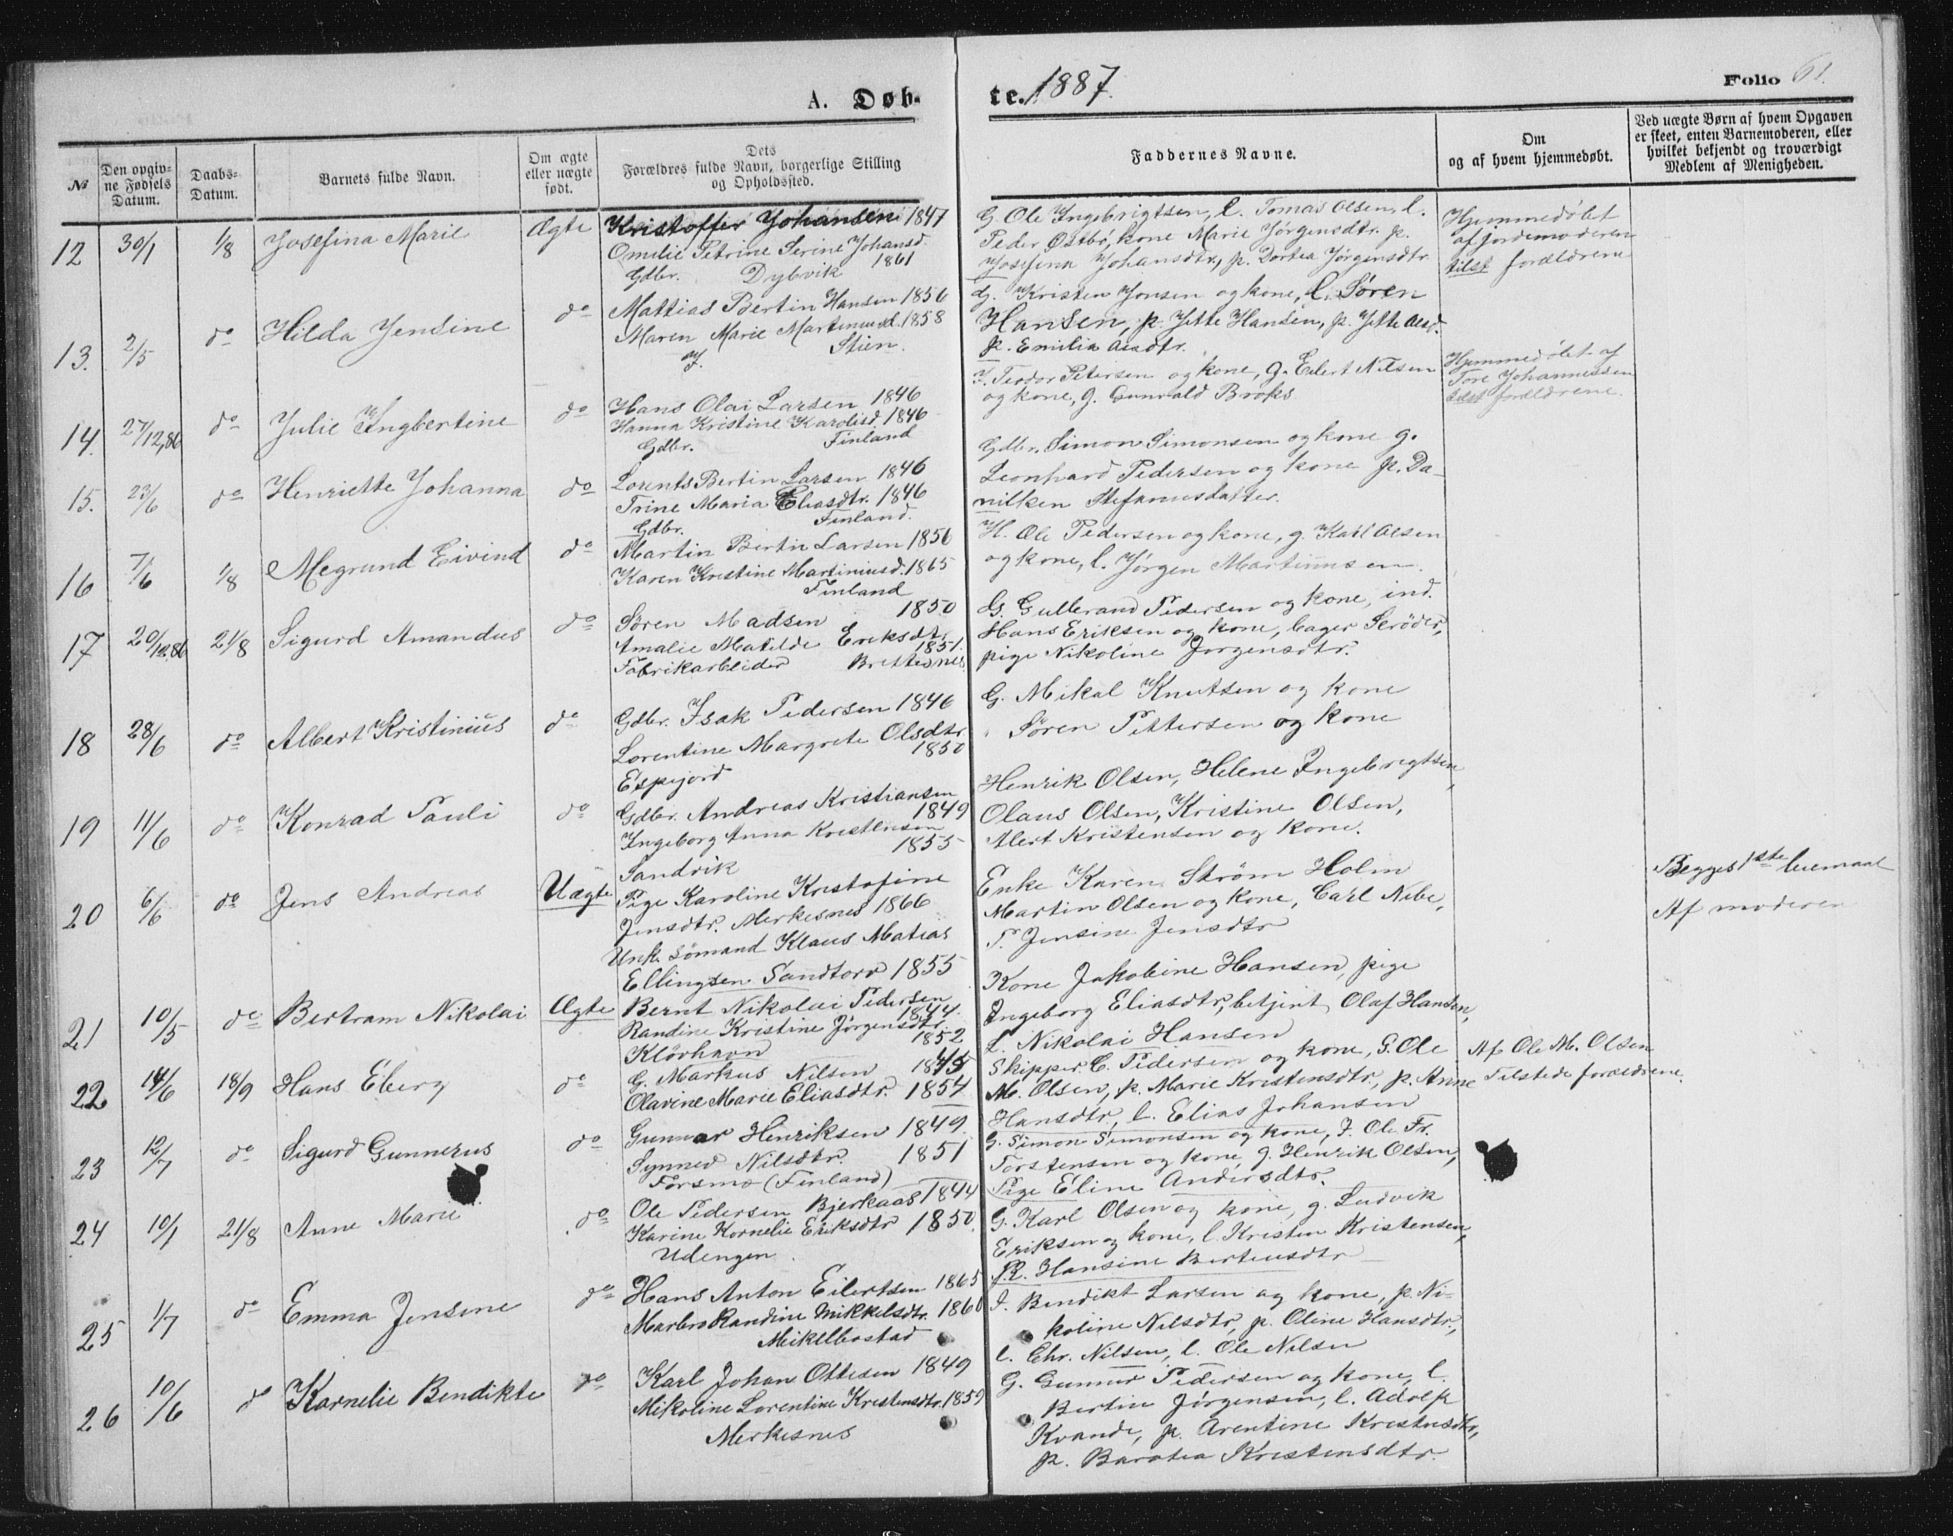 A. Døb-
te. 1887.
Folio 61.
№
Den opgiv-
ne Fødsels
Datum.
Daabs-
Datum.
Barnets fulde Navn.
Om ægte
eller uægte
født.
Dets
Forældres fulde Navn, borgerlige Stilling
og Opholdssted.
Faddernes Navne.
Om
og af hvem hjemmedøbt.
Ved uægte Børn af hvem Opgaven
er skeet, enten Barnemoderen, eller
hvilket bekjendt og troværdigt
Medlem af Menigheden.
12 30/1 1/8 Josefina Marie Ægte
Kristoffer Johansen 1847
Omilie Petrine Serine Johansd.
Gdbr. Dybvik 1861
G. Ole Ingebrigtsen, l. Tomas Olsen, l.
Peder Østbø, kone Marie Jørgensdtr. p.
Josefina Johansdtr, p. Dortea Jørgensdtr
Hjemmedøbt
af jordemoderen
tilst forældrene
13. 2/5 do Hilda Jensine do
Mattias Bertin Hansen 1856
Maren Marie Martinusd. 1858
Stien.
G. Kristen Jonsen og kone, l. Søren
Hansen, p. Jette Hansen, p. Jette Olsd.
p. Emilia Olsdtr.
14. 27/12,86 do Julie Ingbertine do
Hans Olai Larsen 1846
Hanna Kristine Karolisd. 1846
Gdbr. Finland
I. Teodor Petersen og kone, g. Eilert Nilsen
og kone, g. Gunvald Broks
Hjemmedøbt af
Tore Johannessen
tilst forældrene.
15. 23/6 do Henriette Johanna do
Lorents Bertin Larsen 1846
Trine Maria Eliasdtr. 1846
Gdbr. Finland.
Gdbr. Simon Simonsen og kone g.
Leonhard Pedersen og kone p. Da-
nilken Stefanusdatter.
16 7/6 1/8 Megrund Eivind do
Martin Bertin Larsen 1856
Karen Kristine Martiniusd. 1865
Finland
H. Ole Pedersen og kone, g. Karl Olsen
og kone, l. Jørgen Martinusen.
17 20/12.86 21/8 Sigurd Amandus do
Søren Madsen 1850
Amalie Matilde Eriksdtr
1851.
Fabrikarbeider Brettesnes
G. Gullerand Pedersen og kone, ind.
Hans Eriksen og kone, bager Skrøder,
pige Nikoline Jørgensdtr.
18 28/6 do Albert Kristinius do
Gdbr. Isak Pedersen 1846
Lorentine Margrete Olsdtr
1850
Espejord
G. Mikal Knutsen og kone
" Søren Pettersen og kone
19 11/6 do Konrad Pauli do
Gdbr. Andreas Kristiansen
1849
Ingeborg Anna Kristensen
1855
Sandvik
Henrik Olsen, Helene Ingebregtsen,
Olaus Olsen, Kristine Olsen,
Alert Kristensen og kone.
20 6/6 do Jens Andreas Uægte
Pige Karoline Kristofine
Jensdtr. Merkesnes 1866
Unk. Sømand Klaus Matias
Ellingsen Sandtorv 1855
Enke Karen Strøm Holm
Martin Olsen og kone, Carl Nibe,
P. Jensine Jensdtr
Begges 1ste leiemaal
Af moderen
21 10/5 do Bertram Nikolai Ægte
Bernt Nikolai Pedersen
1844.
Randine Kristine Jørgensdtr.
1852
Kløvhavn
Kone Jakobine Hansen, pige
Ingeborg Eliasdtr, betjent Olaf Hansen,
L. Nikolai Hansen
22 14/6 18/9 Hans Eberg do
G. Markus Nilsen 1845
Olavine Marie Eliasdtr. 1854
Skipper C. Pedersen og kone, G. Ole
M. Olsen, p. Marie Kristensdtr, p. Anne
Hansdtr, l. Elias Johansen
Af Ole M. Olsen
Tilstede forældrene.
23 12/7 do Sigurd Gunnerus do
Gunnar Henriksen 1849.
Synnev Nilsdtr. 1851
Forsmo (Finland)
G. Simon Simonsen og kone, J. Ole Fr.
Torstensen og kone, g. Henrik Olsen,
Pige Eline Andersdtr.
24 10/1 21/8 Anne Marie do
Ole Pedersen Bjerkaas 1844
Karine Kornelie Eriksdtr 1850.
Udengen.
G. Karl Olsen og kone, g. Ludvik
Eriksen og kone, l. Kristen Kristensen,
P. Hansine Bertensdtr
25 1/7 do Emma Jensine do
Hans Anton Eilertsen 1865
Marbro Randine Mikkelsdtr. 1860
Mikelbostad
I. Bendikt Larsen og kone, p. Ni-
koline Nilsdtr, p. Oline Hansdtr,
l. Chr. Nilsen, l. Ole Nilsen
26 10/6 do Karnelie Bendikte do
Karl Johan Ottesen 1849
Nikoline Lorentine Kristensdtr. 1859
Merkesnes
G. Gunnar Pedersen og kone, l.
Bertin Jørgensen, l. Adolf
Kvande, p. Arentine Kristensdtr,
p. Baratea Kristensdtr.